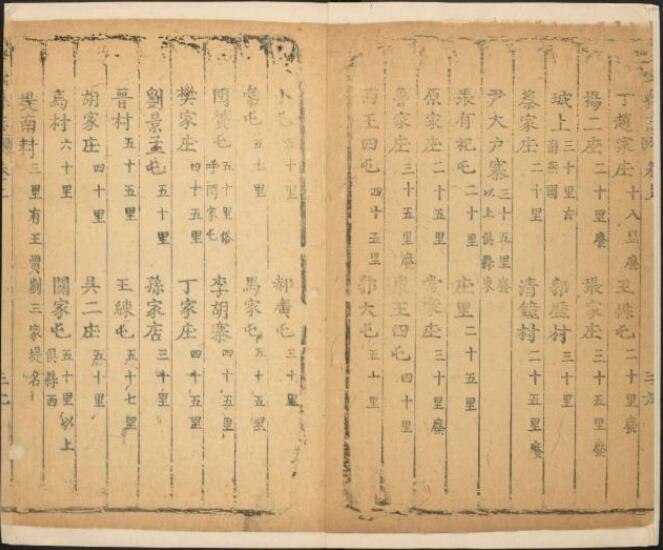 丁趙家庄 十八里 廢 王 屯 二十里 廢
楊二庄 二十里 廢 張家庄 三十五里 廢
城上 三十里 古南燕國 郭 村 三十里
蔡家庄 二十里 清鐘村 二十五里 廢
尹大户寨 三十五里 廢 以上俱縣東
張有 屯 二十里 庄里 二十五里
原家庄 二十五里 家庄 三十里 廢
魯家庄 三十五里 廢 王四屯 四十里
西王四屯 四十五里 郭大屯 五十里
屯 十里 郝廣屯 三十里
屯 五十七里 馬家屯 五十五里
閆贊屯 五十里 俗呼閆家屯 李胡寨 四十五里
樊家庄 四十五里 丁家庄 四十五里
劉景玉屯 五十里 孫家店 三十里
晋村 五十五里 王練屯 五十七里
胡家庄 四十里 吳二庄 五十里
馬村 六十里 關家屯 五十里 以上俱縣西
吳南村 三里 有王賈劉三家堤名